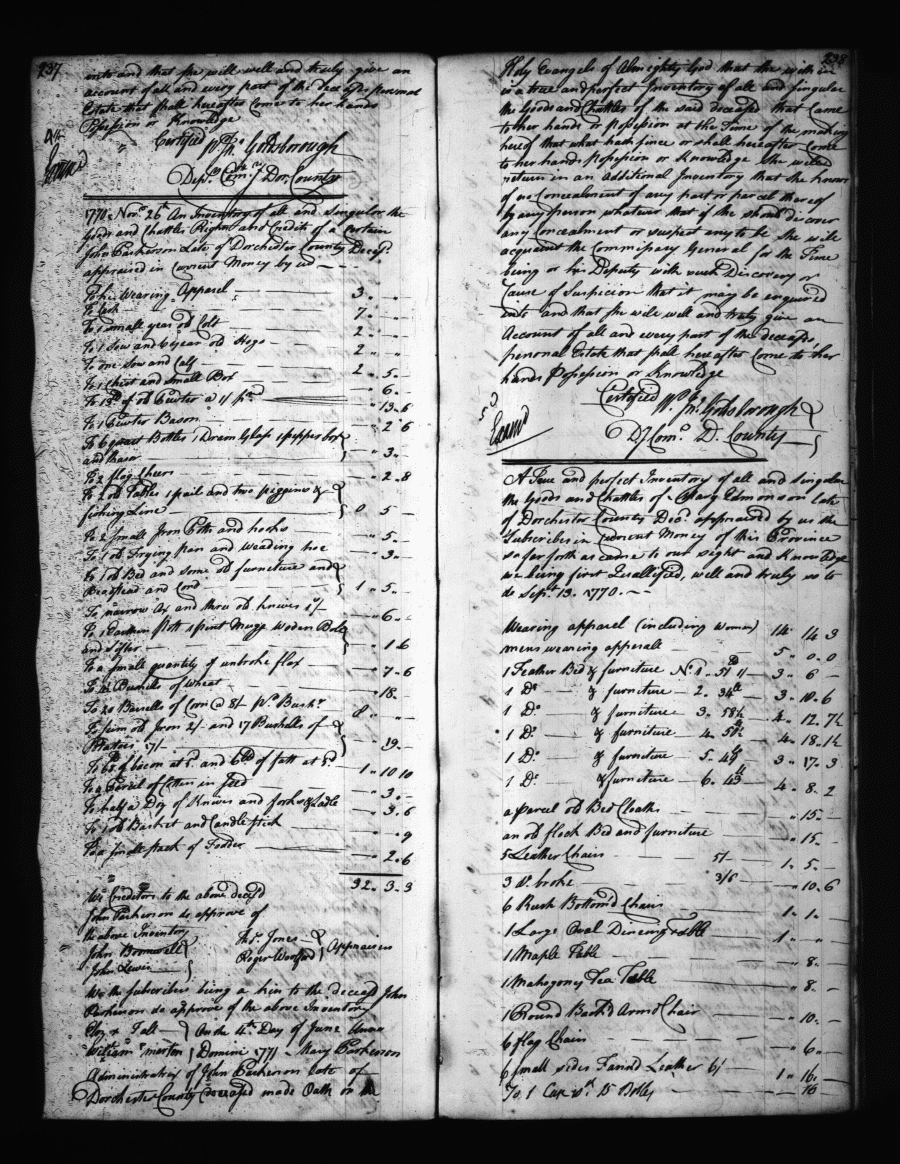 237
unto and that she will well and truly give an
account of all and every part of the decd. personal
Estate that shall hereafter Come to her hands
Possession or Knowledge
Certified Wm. Jno. Goldsborough
Depy. Comy. Dor. County
Examd.
1770 Novr. 26th An Inventory of all and Singular the
Goods and Chattles Rights and Credits of a Certain
John Parkerson Late of Dorchester County Decd.
appraised in Current Money by us
To his Wearing Apparel 3 " "
To Cash 7 " "
To 1 small year old Colt 2 " "
To 1 Sow and 6 year old Hogs 2 " "
To one Cow and Calf 2 " 5 "
To 1 Chest and small Box " 6 "
To 13lb of old Pewter a 1/ pd. " 13 " 6
To 1 Pewter Bason " 2 " 6
To 6 quart Bottles 1 Dram Glass 1 pepper box
and Razor " 3 "
To 2 flag Chairs " 2 " 8
To 2 old Tables 1 pail and two piggins &
fishing Line 0 5 "
To 2 small Iron Potts and hooks " 5 "
To 1 old Frying pan and weading hoe " 3 "
To 1 old Bed and some old furneture and
Beadstead and Cord 1 " 5 "
To narrow Ax and three old knives 1/ " 6 "
To 1 Earthen Pott 1 pint Mugg Woden Bole
and Sifter " 1 6
To a small quantity of unbroke flax " 7 " 6
To Burells of Wheat " 18 "
To 20 Barells of Corn @ 8/ pr. Bushr. 8 " "
To sum old Iron 2/ and 17 Bushells of
Potatoes 17/ " 19 "
of bacon at and 6lb of fatt at 1 " 10 10
To a Parcel of Cotten in Seed " 3 "
To half a Doz. of Knives and forks & Ladle " 3 " 6
To 1 old Basket and Candlestick " " 9
To a small stack of Fodder " 2 " 6
32 " 3 " 3
We Creditors to the above decd.
John Parkerson do approve of
the above Inventory
John Bromwell Thos. Jones
John Lewis Roger Woolford Appraisers
We the Subscribers being a kin to the deceasd John
Parkerson do approve of the above Inventory
+ Fall On the 4th Day of June Anno
William Domini 1771 Mary Parkerson
Administratrix of John Parkerson late of
Dorchester County Deceased made Oath on the
238
Holy Evangels of Almighty God that the within
is a true and perfect Inventory of all and singular
the Goods and Chattles of the said deceased that Came
to her hands or Possession at the Time of the making
hereof that what hath since or shall hereafter Come
to her hands Possession or Knowledge She will
return in an Additional Inventory that she knows
of no Concealment of any part or parcel thereof
by any person whatever that if she shoud discover
any Concealment or suspect any to be She will
acquaint the Commissary General for the Time
being or his Deputy with such Discovery or
Cause of Suspicion that it may be enquired
into and that she will well and truly give an
Account of all and every part of the deceasds.
personal Estate that shall hereafter Come to her
hands Possession or Knowledge
Certified Wm. Jno. Goldsborough
Dy. Comy. D. County
Examd.
A True and perfect Inventory of all and singular
the Goods and Chattles of Mary Edmonson late
of Dorchester County Decd. appraised by us the
Subscribers in Current Money of this Province
so far forth as came to our sight and Knowledge
we being first Quallified, well and truly so to
do Sept. 13. 1770.
Wearing apparel (including Woman) 14 14 3
mens wearing apperall 5 " 0 " 0
1 Feather Bed & furniture No. 1 " 51lb 3 " 6 "
1 Do. & furniture 2 " 34lb 3 " 10 " 6
1 Do. & furniture 3 " 58½ 4 " 12 " 7½
1 Do. & furniture 4 " 58½ 4 " 18 " 1½
1 Do. & furniture 5 " 49 3 " 17 " 3
1 Do. & furniture 6 " 43 4 " 8 " 2
a Parcel old Bed Cloaths " 15 "
an old flock Bed and furniture " 15
5 Leather Chairs 5/ 1 " 5 "
3 do. broke 3/6 " 10 " 6
6 Rush Bottom'd Chairs 1 " 1 "
1 Large Oval Dineing table 1 " "
1 Maple Table " 8 "
1 Mahogony Tea Table " 8 "
1 Round Back'd Arm'd Chair " 10 "
6 flag Chairs " 6 "
6 Small sides Tann'd Leather 6/ 1 " 16 "
To 1 Case wt. 15 Botles " 15